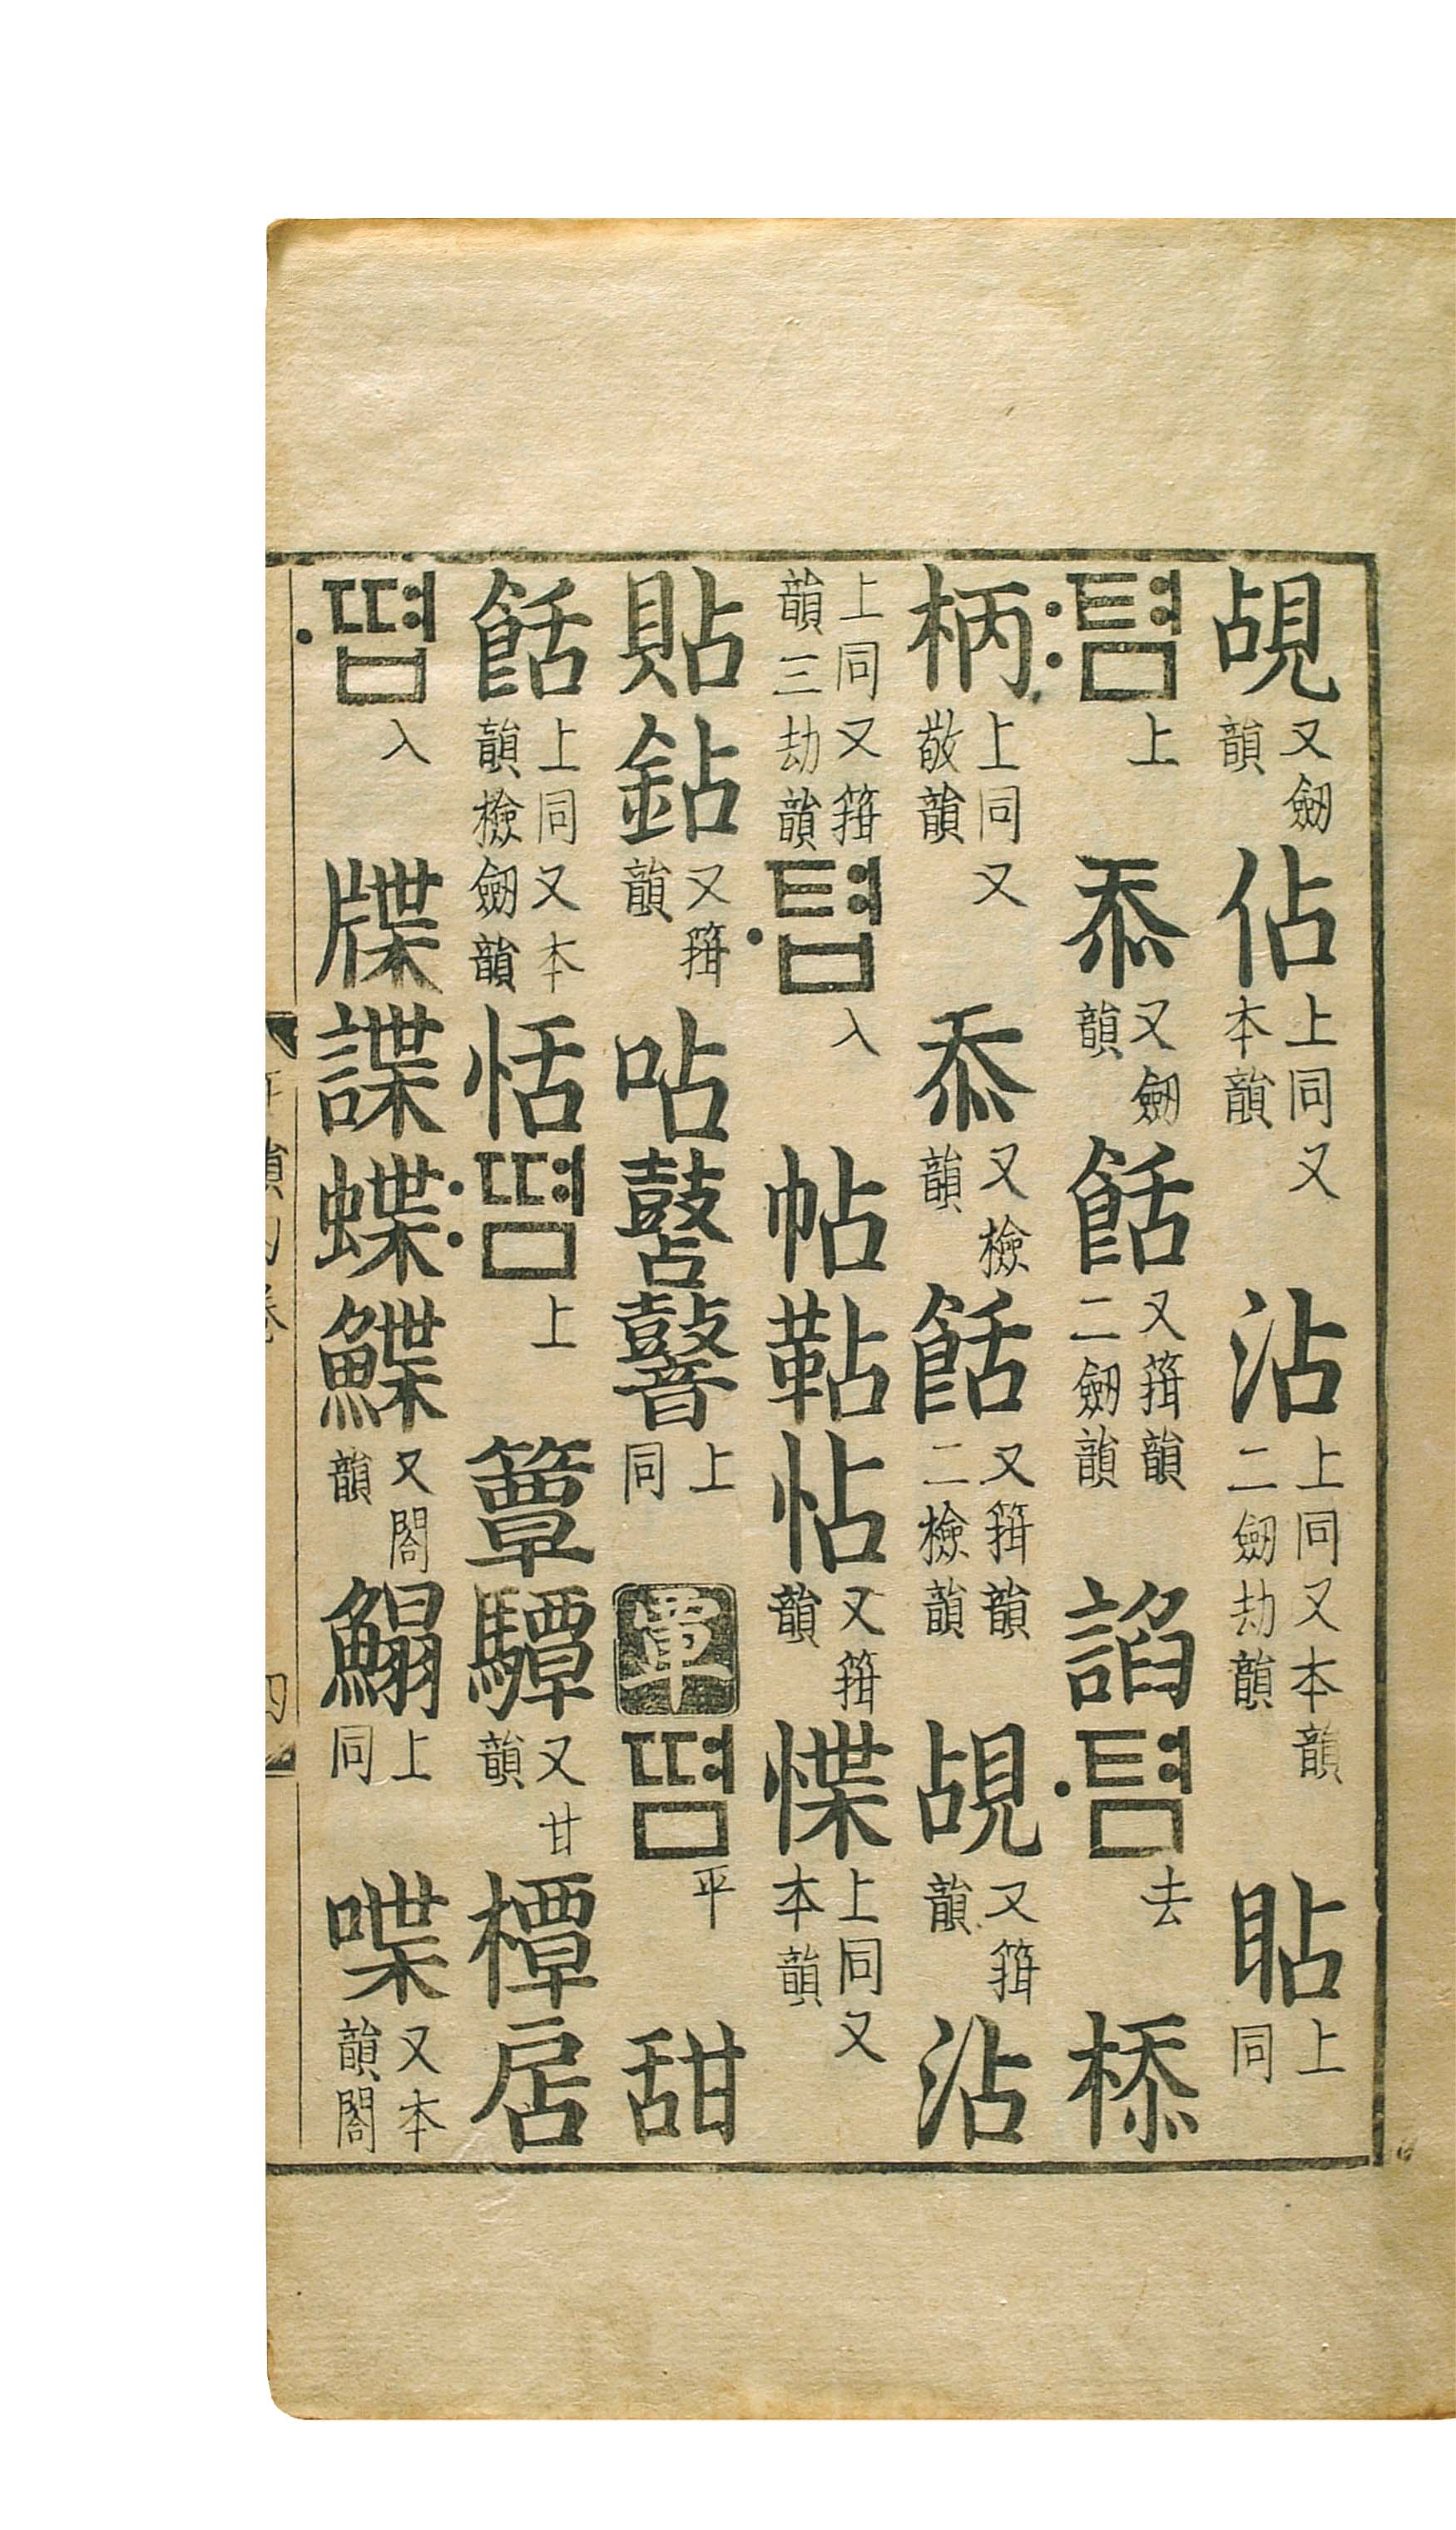 覘 又劒韻 佔 上同又本韻 沾 上同又本韻二劒劫韻 䀡 上同
:텸 上 忝 又劒韻 餂 又箝韻二劒韻 諂 ·텸 去 㮇
柄 上同又敬韻 忝 又檢韻 餂 又箝韻二檢韻 覘 又箝韻 沾
上同又箝韻三劫韻 ·텸 入 帖 鞊 怗 又箝韻 惵 上同又本韻
貼 鉆 又箝韻 呫 上同 覃 뗨 平 甜
餂 上同又本韻檢劒韻 恬 :뗨 上 簟 驔 又甘韻 橝 扂
·뗨 入 牒 諜 蝶 鰈 又閤韻 鰨 上同 喋 又本韻閤